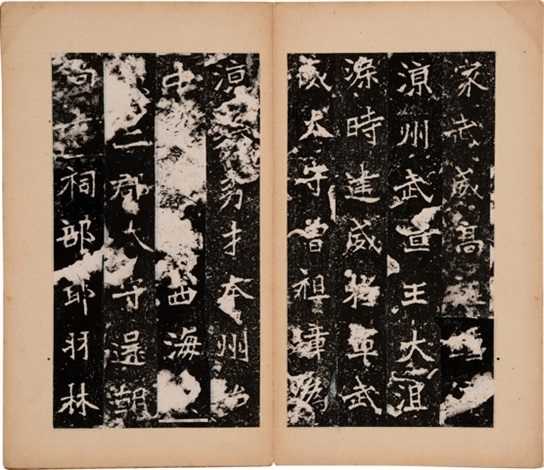 家武威高祖
涼州武宣王大沮
渠時建威將軍武
威太守曾祖璋偽
涼秀才本州治
中西海
二郡太守還朝
尚祠部郎羽林